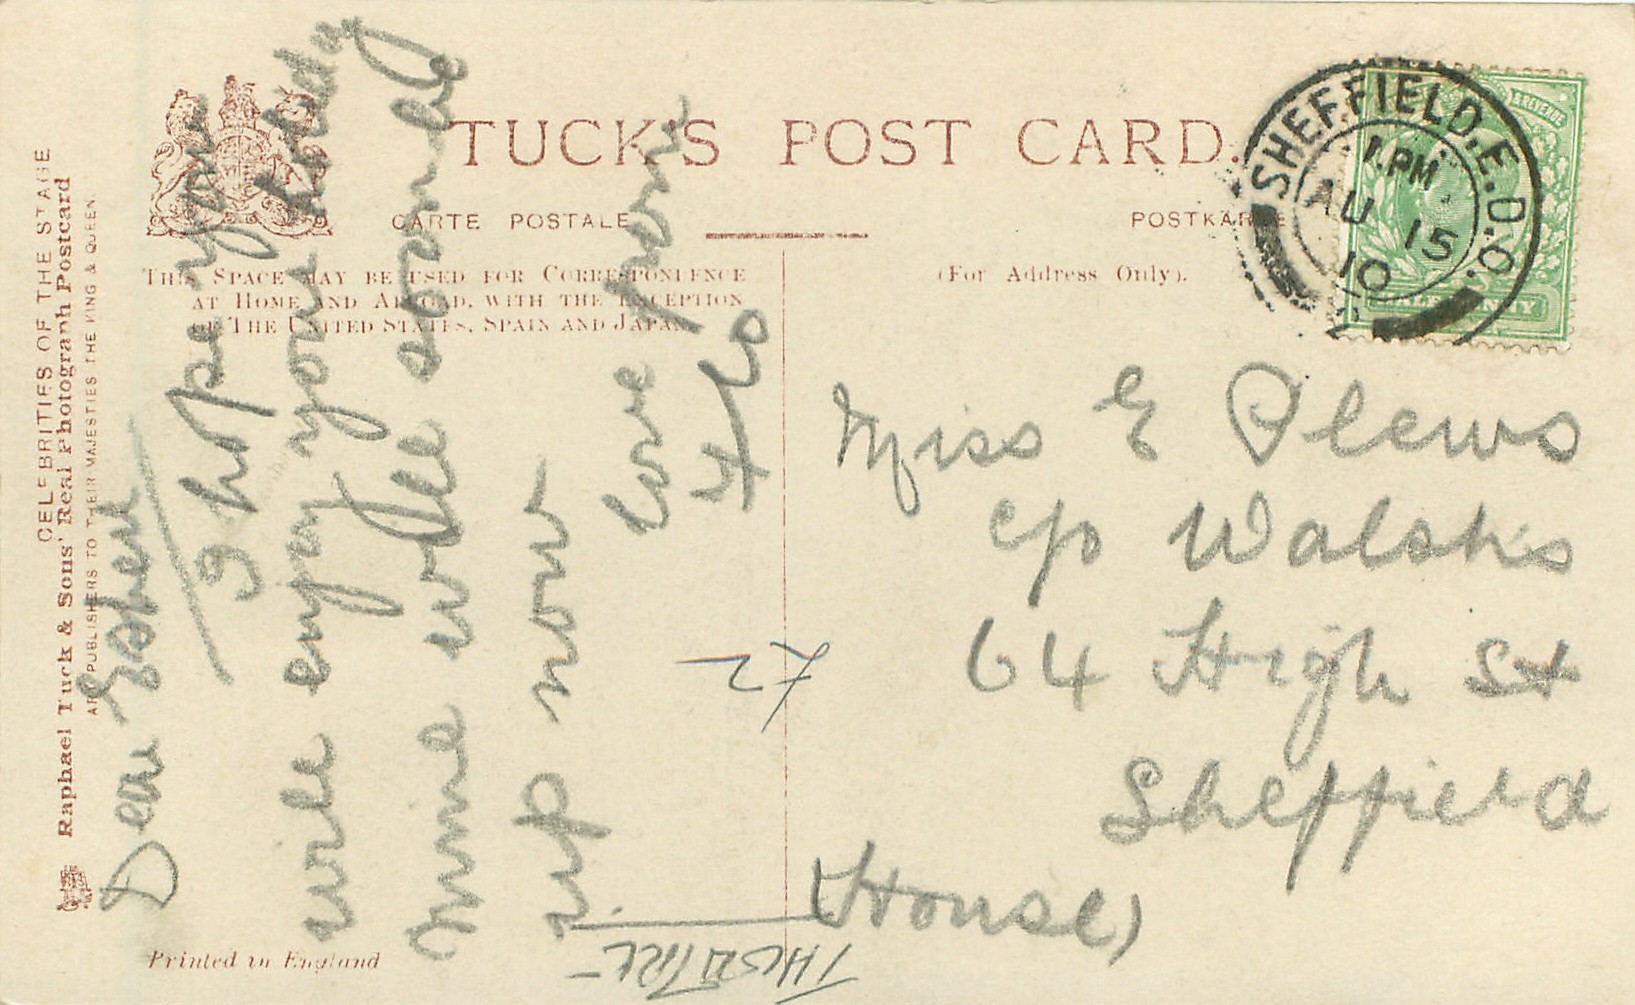 CELEBRITIES OF THE STAGE
Raphael Tuck & Sons' Real Photograph Postcard
ART PUBLISHERS TO THEIR MAJESTIES THE KING & QUEEN.
TUCK'S POST CARD.
CARTE POSTALE
POSTKARTE
THIS SPACE MAY BE USED FOR CORRESPONDENCE
AT HOME AND ABROAD, WITH THE EXCEPTION
OF THE UNITED STATES, SPAIN AND JAPAN.
(For Address Only).
SHEFFIELD. E.D.O.
1. PM
AU 15
10
2
& REVENUE
HALFPENNY
Dear Esther
I hope you
will enjoy your holiday
mine will soon be
up now
love from
Miss E Plews
c/o Walshs
64 High St
Sheffield
(House)
£2
THEATRE
Printed in England